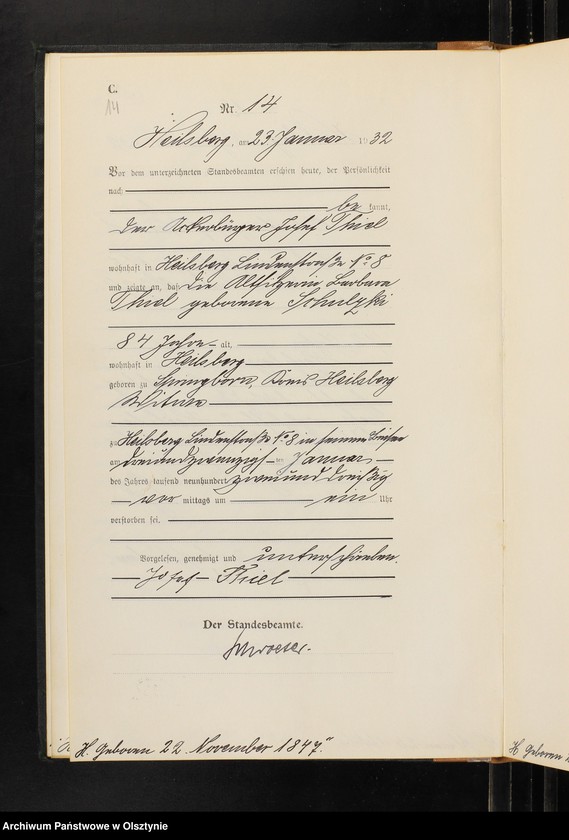 C.
14
Nr. 14
Heilsberg, am 23. Januar 1932
Vor dem unterzeichneten Standesbeamten erschien heute, der Persönlichkeit
nach
be kannt,
der Ackerbürger Josef Thiel
wohnhaft in Heilsberg Lindenstraße No 8
und zeigte an, daß die Altsitzerin Barbara
Thiel geborene Schulzki
84 Jahre alt,
wohnhaft in Heilsberg
geboren zu Springborn, Kreis Heilsberg
Witwe
zu Heilsberg Lindenstraße No 8 in seinem Beisein
am dreiundzwanzigsten Januar
des Jahres tausend neunhundert zweiunddreißig
vor mittags um ein Uhr
verstorben sei.
Vorgelesen, genehmigt und unterschrieben.
Josef Thiel
Der Standesbeamte.
H. Geboren 22. November 1847."
H. Geboren
Archiwum Państwowe w Olsztynie